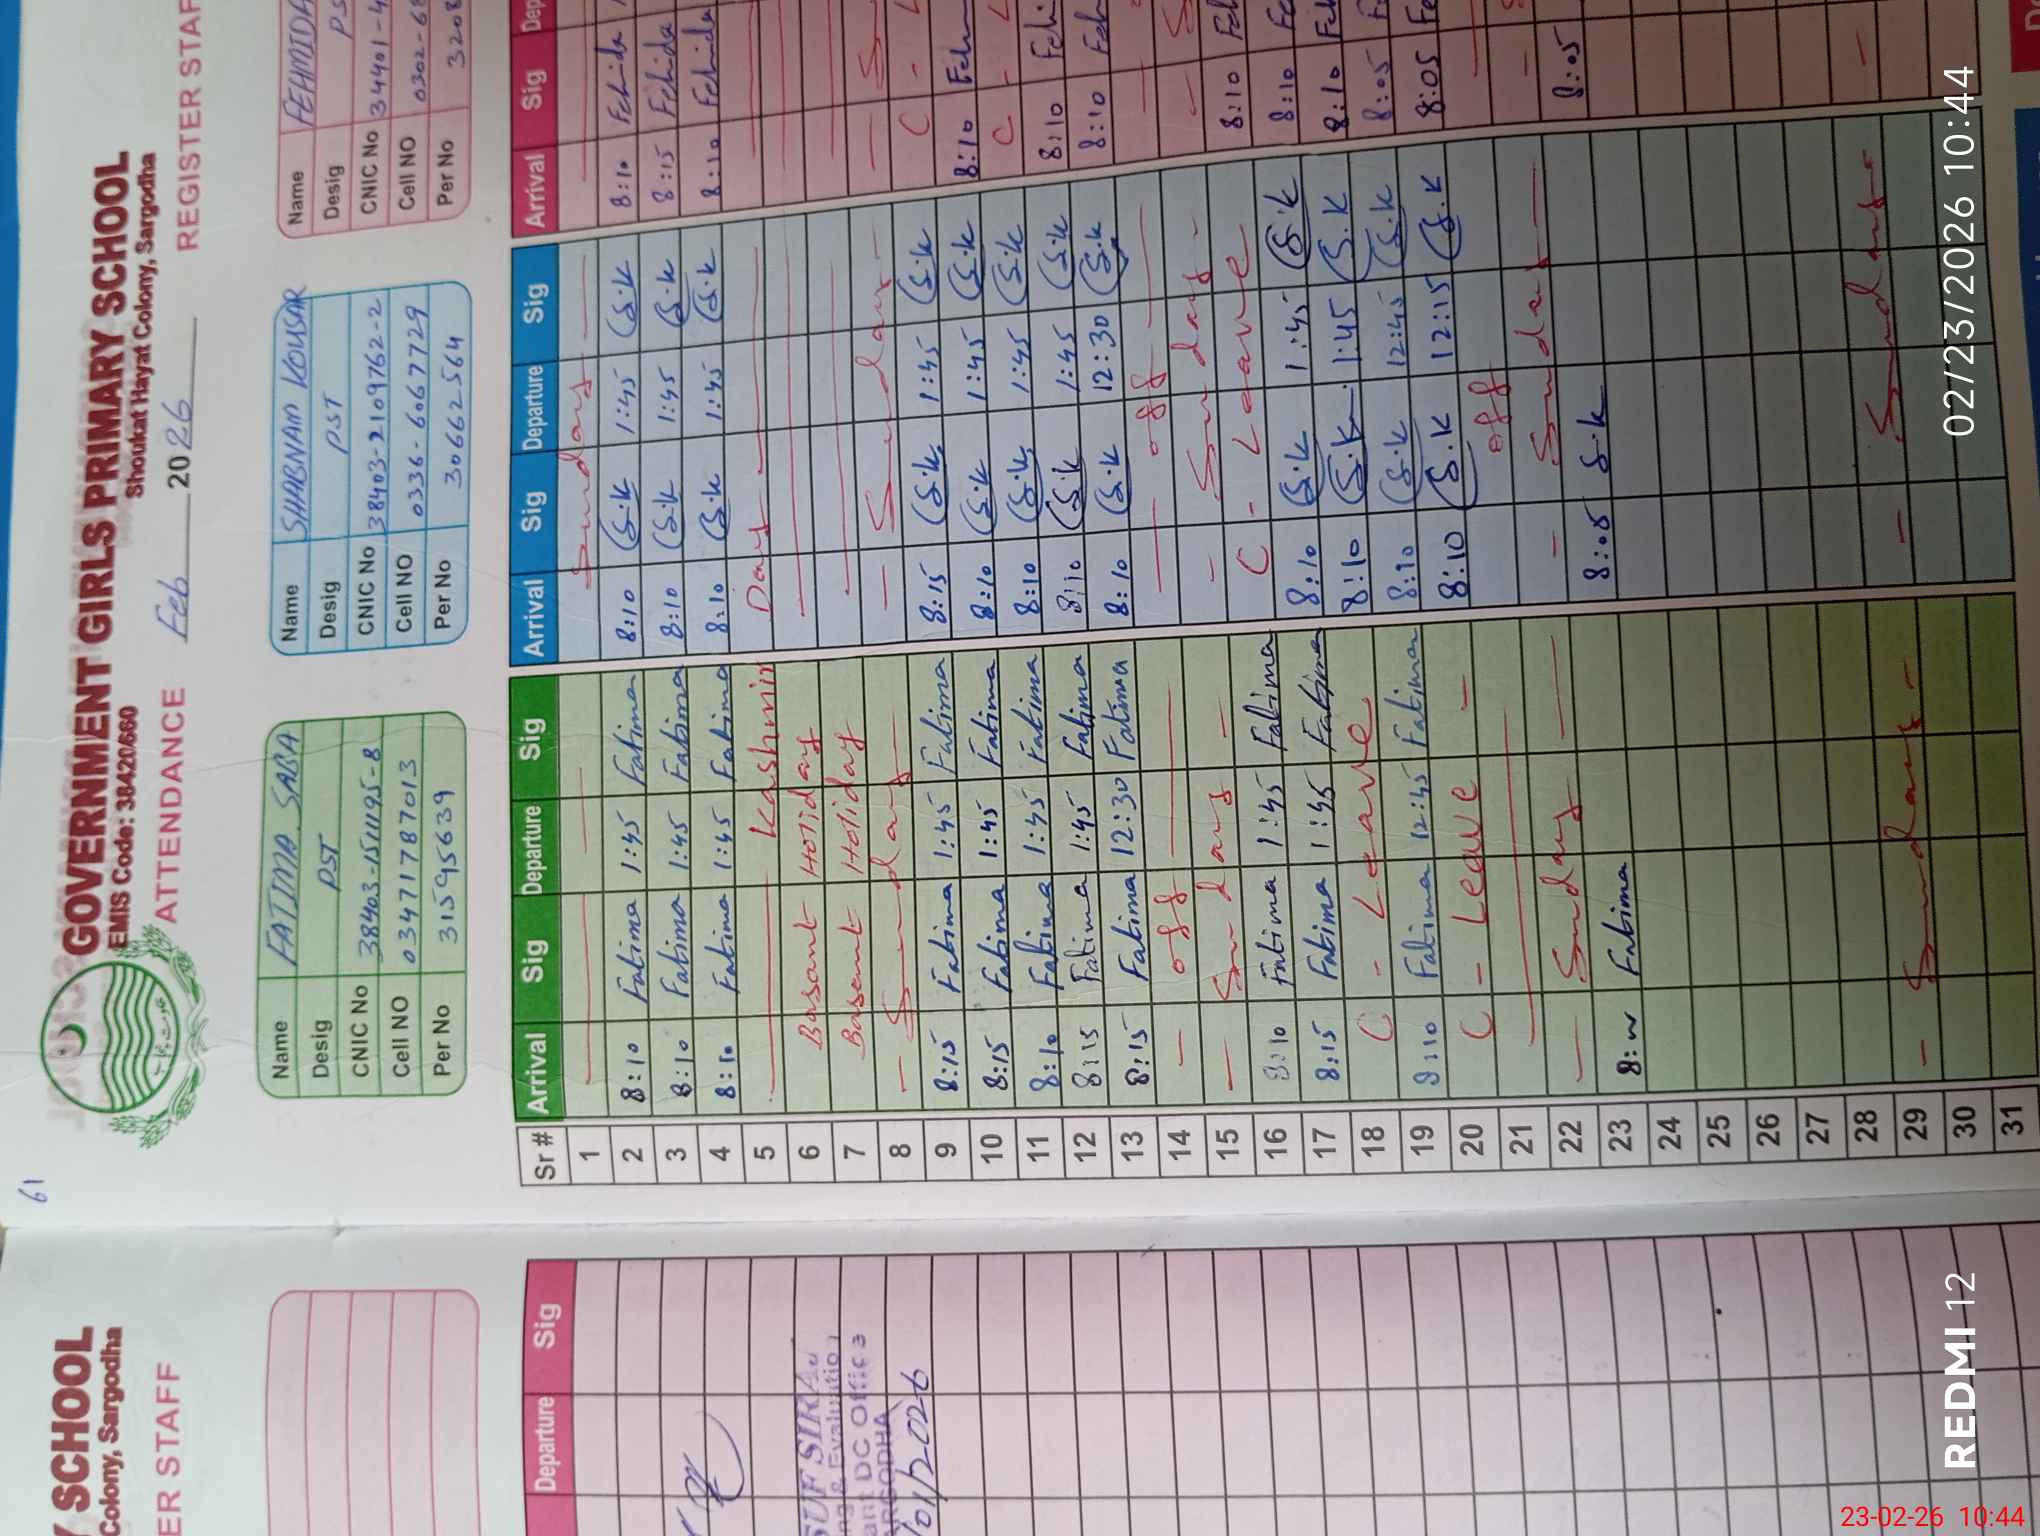 61
GOVERNMENT GIRLS PRIMARY SCHOOL
EMIS Code: 38420660 Shoukat Hayat Colony, Sargodha
ATTENDANCE Feb 2026 REGISTER STAF
Name FATIMA SABA
Desig PST
CNIC No 38403-1511195-8
Cell NO 03471787013
Per No 31595639
Name SHABNAM KOUSAR
Desig PST
CNIC No 38403-2109762-2
Cell NO 0336-6067729
Per No 30662564
Name FEHMIDA
Desig PS
CNIC No 34401-4
Cell NO 0302-68
Per No 3208
Sr # Arrival Sig Departure Sig Arrival Sig Departure Sig Arrival Sig Dep
1 Sunday
2 8:10 Fatima 1:45 Fatima 8:10 S.K 1:45 S.K 8:10 Fehida
3 8:10 Fatima 1:45 Fatima 8:10 S.K 1:45 S.K 8:15 Fehida
4 8:10 Fatima 1:45 Fatima 8:10 S.K 1:45 S.K 8:10 Fehida
5 Kashmir Day
6 Basant Holiday
7 Basant Holiday
8 Sunday Sunday S
9 8:15 Fatima 1:45 Fatima 8:15 S.K 1:45 S.K C - L
10 8:15 Fatima 1:45 Fatima 8:10 S.K 1:45 S.K 8:10 Feh
11 8:10 Fatima 1:45 Fatima 8:10 S.K 1:45 S.K C - L
12 8:15 Fatima 1:45 Fatima 8:10 S.K 1:45 S.K 8:10 Feh
13 8:15 Fatima 12:30 Fatima 8:10 S.K 12:30 S.K 8:10 Feh
14 - off - off
15 - Sunday - - Sunday - - S
16 8:10 Fatima 1:45 Fatima C - Leave 8:10 Feh
17 8:15 Fatima 1:45 Fatima 8:10 S.K 1:45 S.K 8:10 Fe
18 C - Leave 8:10 S.K 1:45 S.K 8:10 Feh
19 8:10 Fatima 12:45 Fatima 8:10 S.K 12:45 S.K 8:05 F
20 C - Leave - 8:10 S.K 12:15 S.K 8:05 Fe
21 off
22 - Sunday - - Sunday - - S
23 Fatima 8:05 S.K 8:05
24
25
26
27
28
29 - Sunday - - Sunday - -
30
31
Y SCHOOL
Colony, Sargodha
ER STAFF
Departure Sig
SUF SIRA
ng & Evaluation
ant DC Office
ARGODHA
/01/2026
REDMI 12
02/23/2026 10:44
23-02-26 10:44